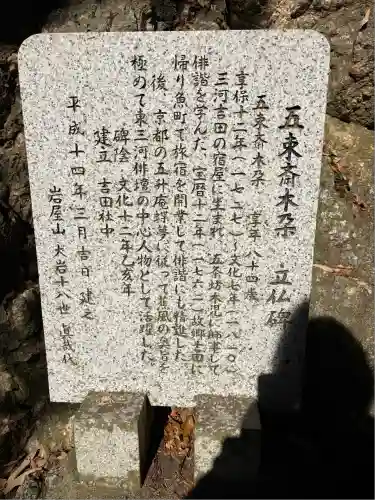 五束斎木朶 立仏碑
五束斎木朶 享年八十四歳
享保十二年(一七二七)~文化七年(一八一〇)
三河吉田の宿屋に生まれ 五条坊木児に師事して
俳諧を学んだ。宝暦十二年(一七六二)故郷吉田に
帰り魚町で旅宿を開業して俳諧にも精進した。
後、京都の五升庵蝶夢に従って蕉風の奥旨を
極めて東三河俳壇の中心人物として活躍した。
碑陰 文化十二年乙亥年
建立 吉田社中
平成十四年三月吉日 建之
岩屋山 大岩十八世